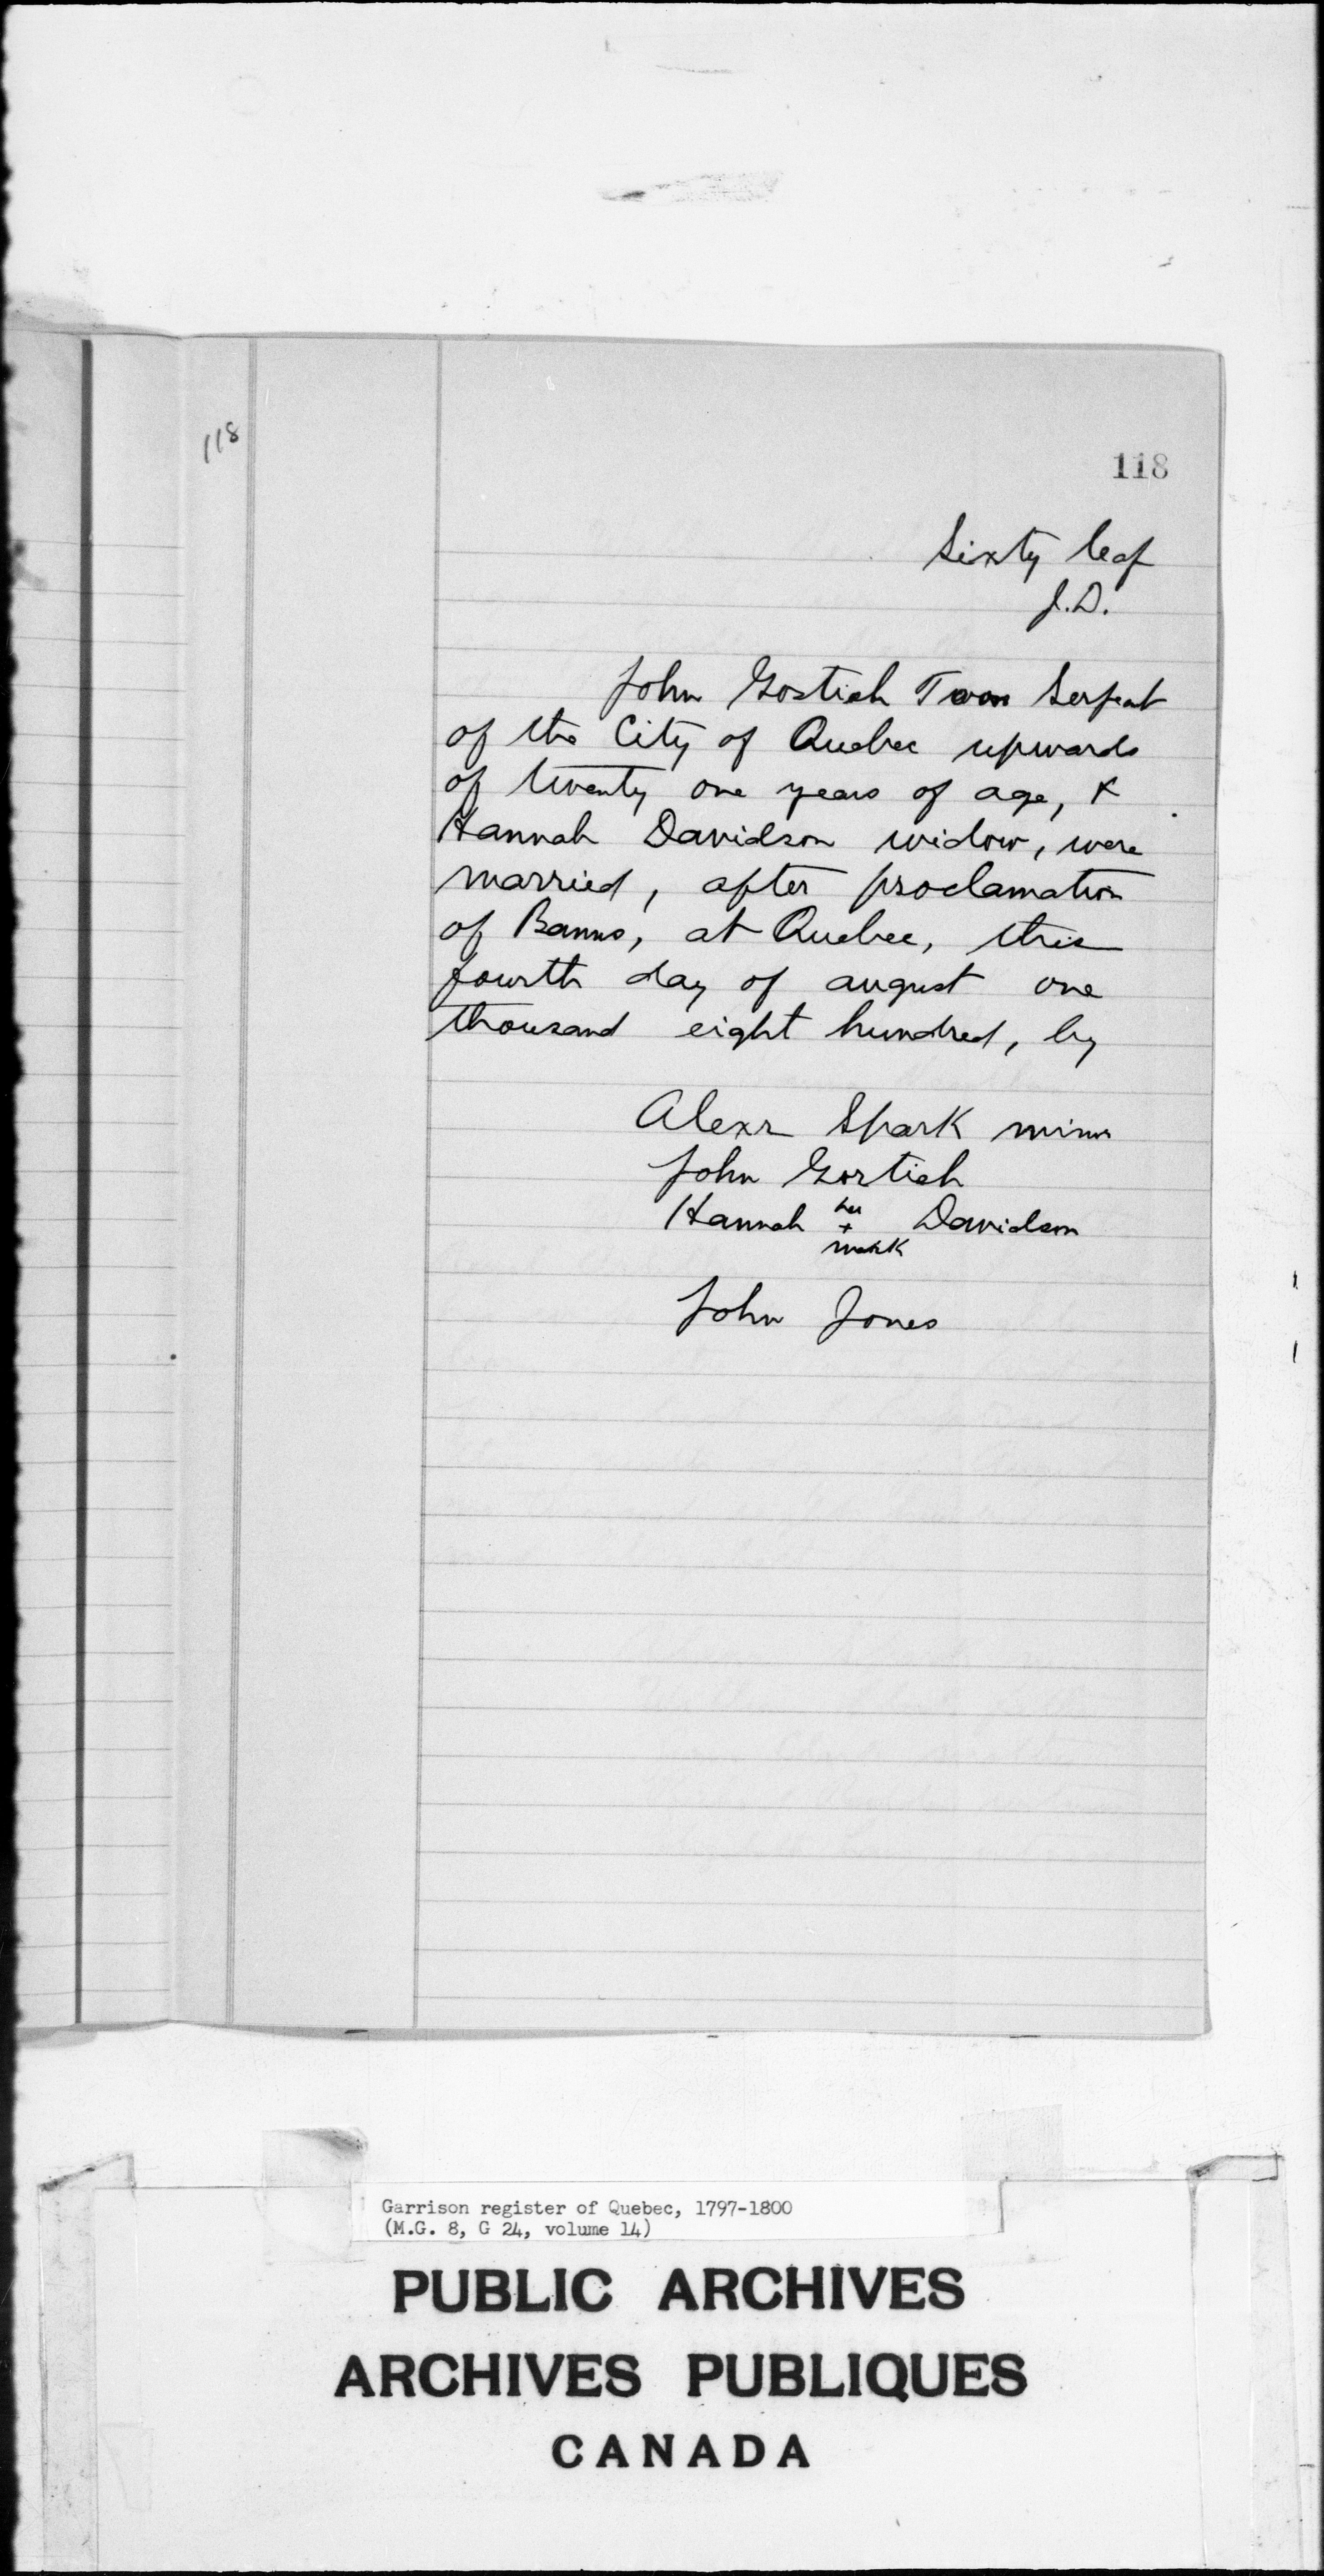 118
118
Sixty leaf
J.D.
John Gostich Town Serjeat
of the City of Quebec upwards
of twenty one years of age, &
Hannah Davidson widow, were
married, after proclamation
of Banns, at Quebec, this
fourth day of august one
thousand eight hundred, by
Alexr Spark minr
John Gostich
Hannah her + mark Davidson
John Jones
Garrison register of Quebec, 1797-1800
(M.G. 8, G 24, volume 14)
PUBLIC ARCHIVES
ARCHIVES PUBLIQUES
CANADA